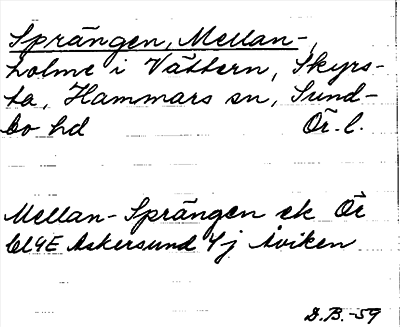 Sprängen, Mellan-,
holme i Vättern, Skyrs-
ta, Hammars sn, Sund-
bo hd Ör. l.
Mellan-Sprängen ek Ör
bl 4E Askersund 4j Åviken
D.B.-59